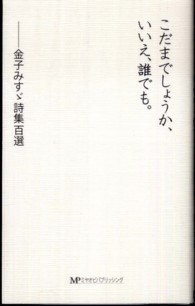 こだまでしょうか、
いいえ、誰でも。
――金子みすゞ詩集百選
MPミヤオビパブリッシング